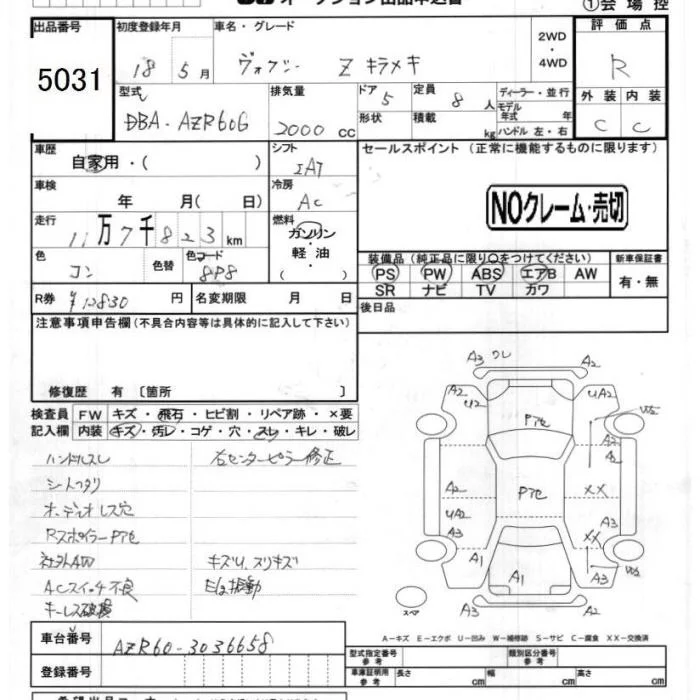 オークション出品申込書
①会場控
出品番号
5031
初度登録年月
18年5月
車名・グレード
ヴォクシー Z キラメキ
2WD
・
4WD
評価点
R
型式
DBA-AZR60G
排気量
2000 cc
ドア
5
定員
8人
形状
積載
kg
ディーラー・並行
モデル
年式 年
ハンドル 左・右
外装 内装
C C
車歴
自家用・( )
シフト
IAT
セールスポイント (正常に機能するものに限ります)
車検
年 月( 日)
冷房
AC
NOクレーム・売切
走行
11万7千823km
燃料
ガソリン
・
軽油
( )
色
コン
色替
色コード
8P8
装備品 (純正品に限り○をつけてください)
新車保証書
PS PW ABS エアB AW
SR ナビ TV カワ
有・無
R券 ¥12830 円
名変期限 月 日
後日品
注意事項申告欄 (不具合内容等は具体的に記入して下さい)
修復歴 有 〔箇所 〕
検査員
記入欄
FW キズ・飛石・ヒビ割・リペア跡・×要
内装 キズ・汚レ・コゲ・穴・スレ・キレ・破レ
ハンドルスレ
右センターピラー修正
シートヘタリ
オーディオレス穴
RスポイラーPア色
社外AW
キズU、スリキズ
ACスイッチ不良
E/g振動
キーレス破損
A3 ワレ A2
A2 U2 UA2
Pア色
A2 A2
Pア色 XX
UA2
A3 A3
XX
A1 A1 A3
A3 A2
スペア
A−キズ E−エクボ U−凹み W−補修跡 S−サビ C−腐食 XX−交換済
車台番号
AZR60-3036658
登録番号
型式指定番号
参考
類別区分番号
参考
車庫証明用
参考
長さ cm 幅 cm 高さ cm